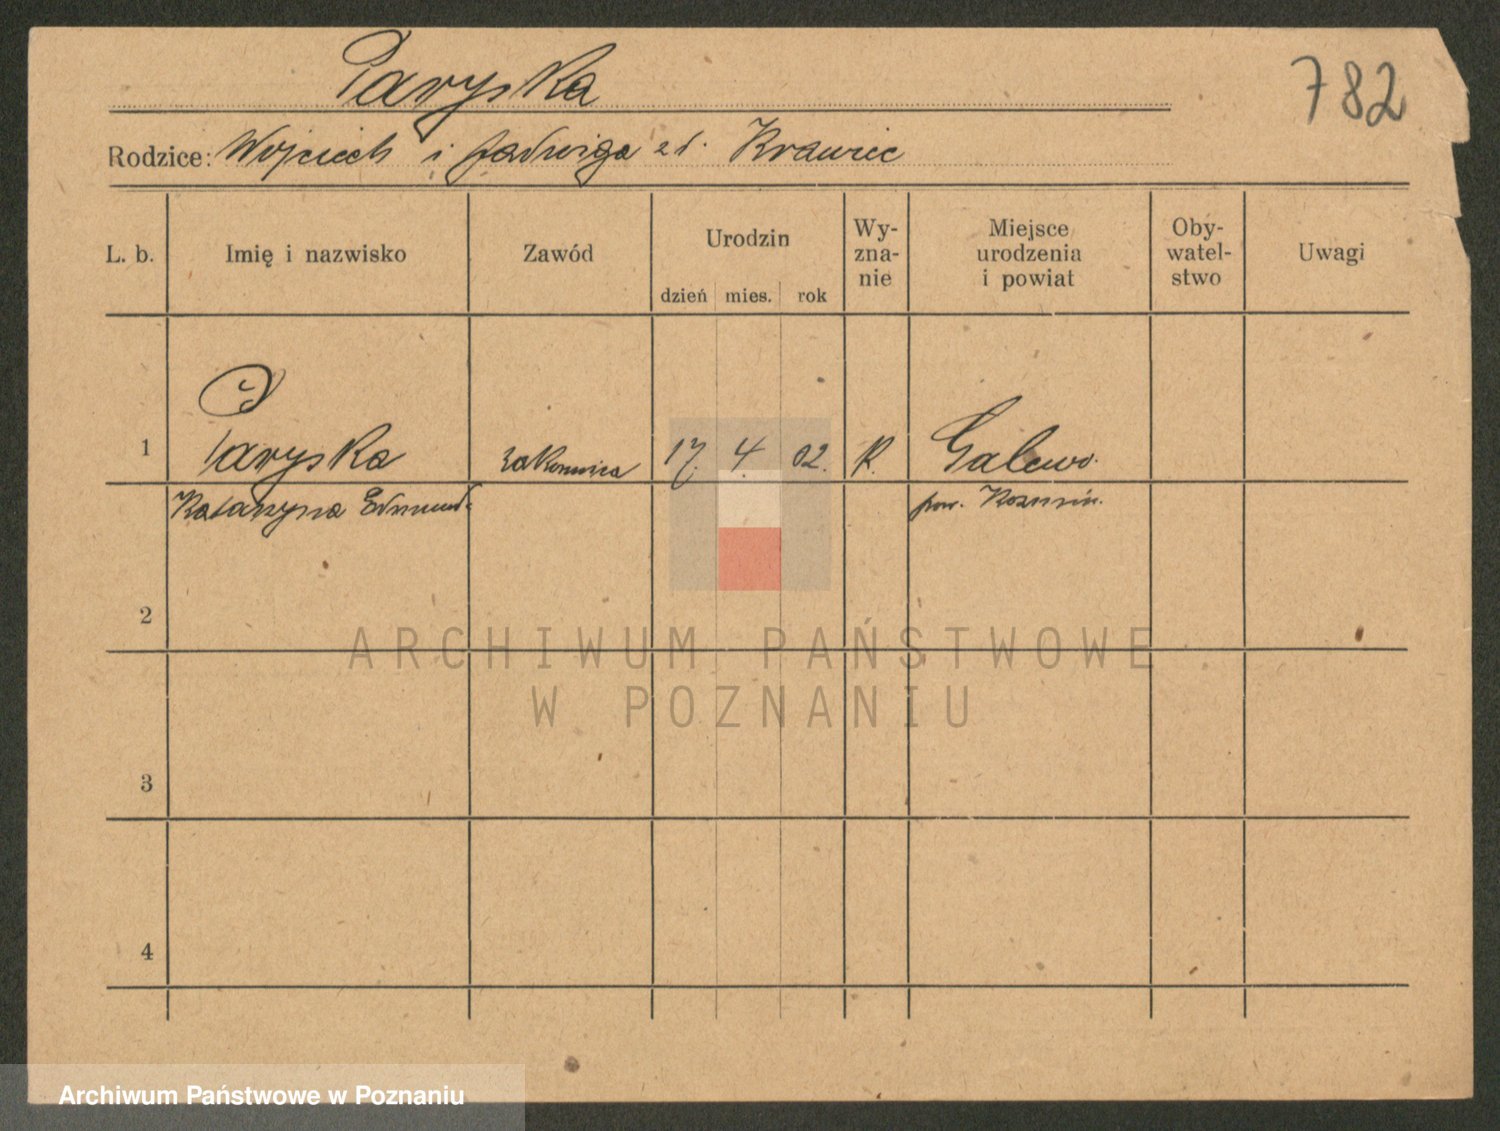 Paryska
782
Rodzice: Wojciech i Jadwiga zd. Krawiec
L. b. Imię i nazwisko Zawód Urodzin dzień mies. rok Wy-zna-nie Miejsce urodzenia i powiat Oby-watel-stwo Uwagi
1 Paryska zakonnica 17. 4. 02. R. Galewo.
Katarzyna Edmunda pow. Koźmin.
2
ARCHIWUM PAŃSTWOWE
W POZNANIU
3
4
Archiwum Państwowe w Poznaniu